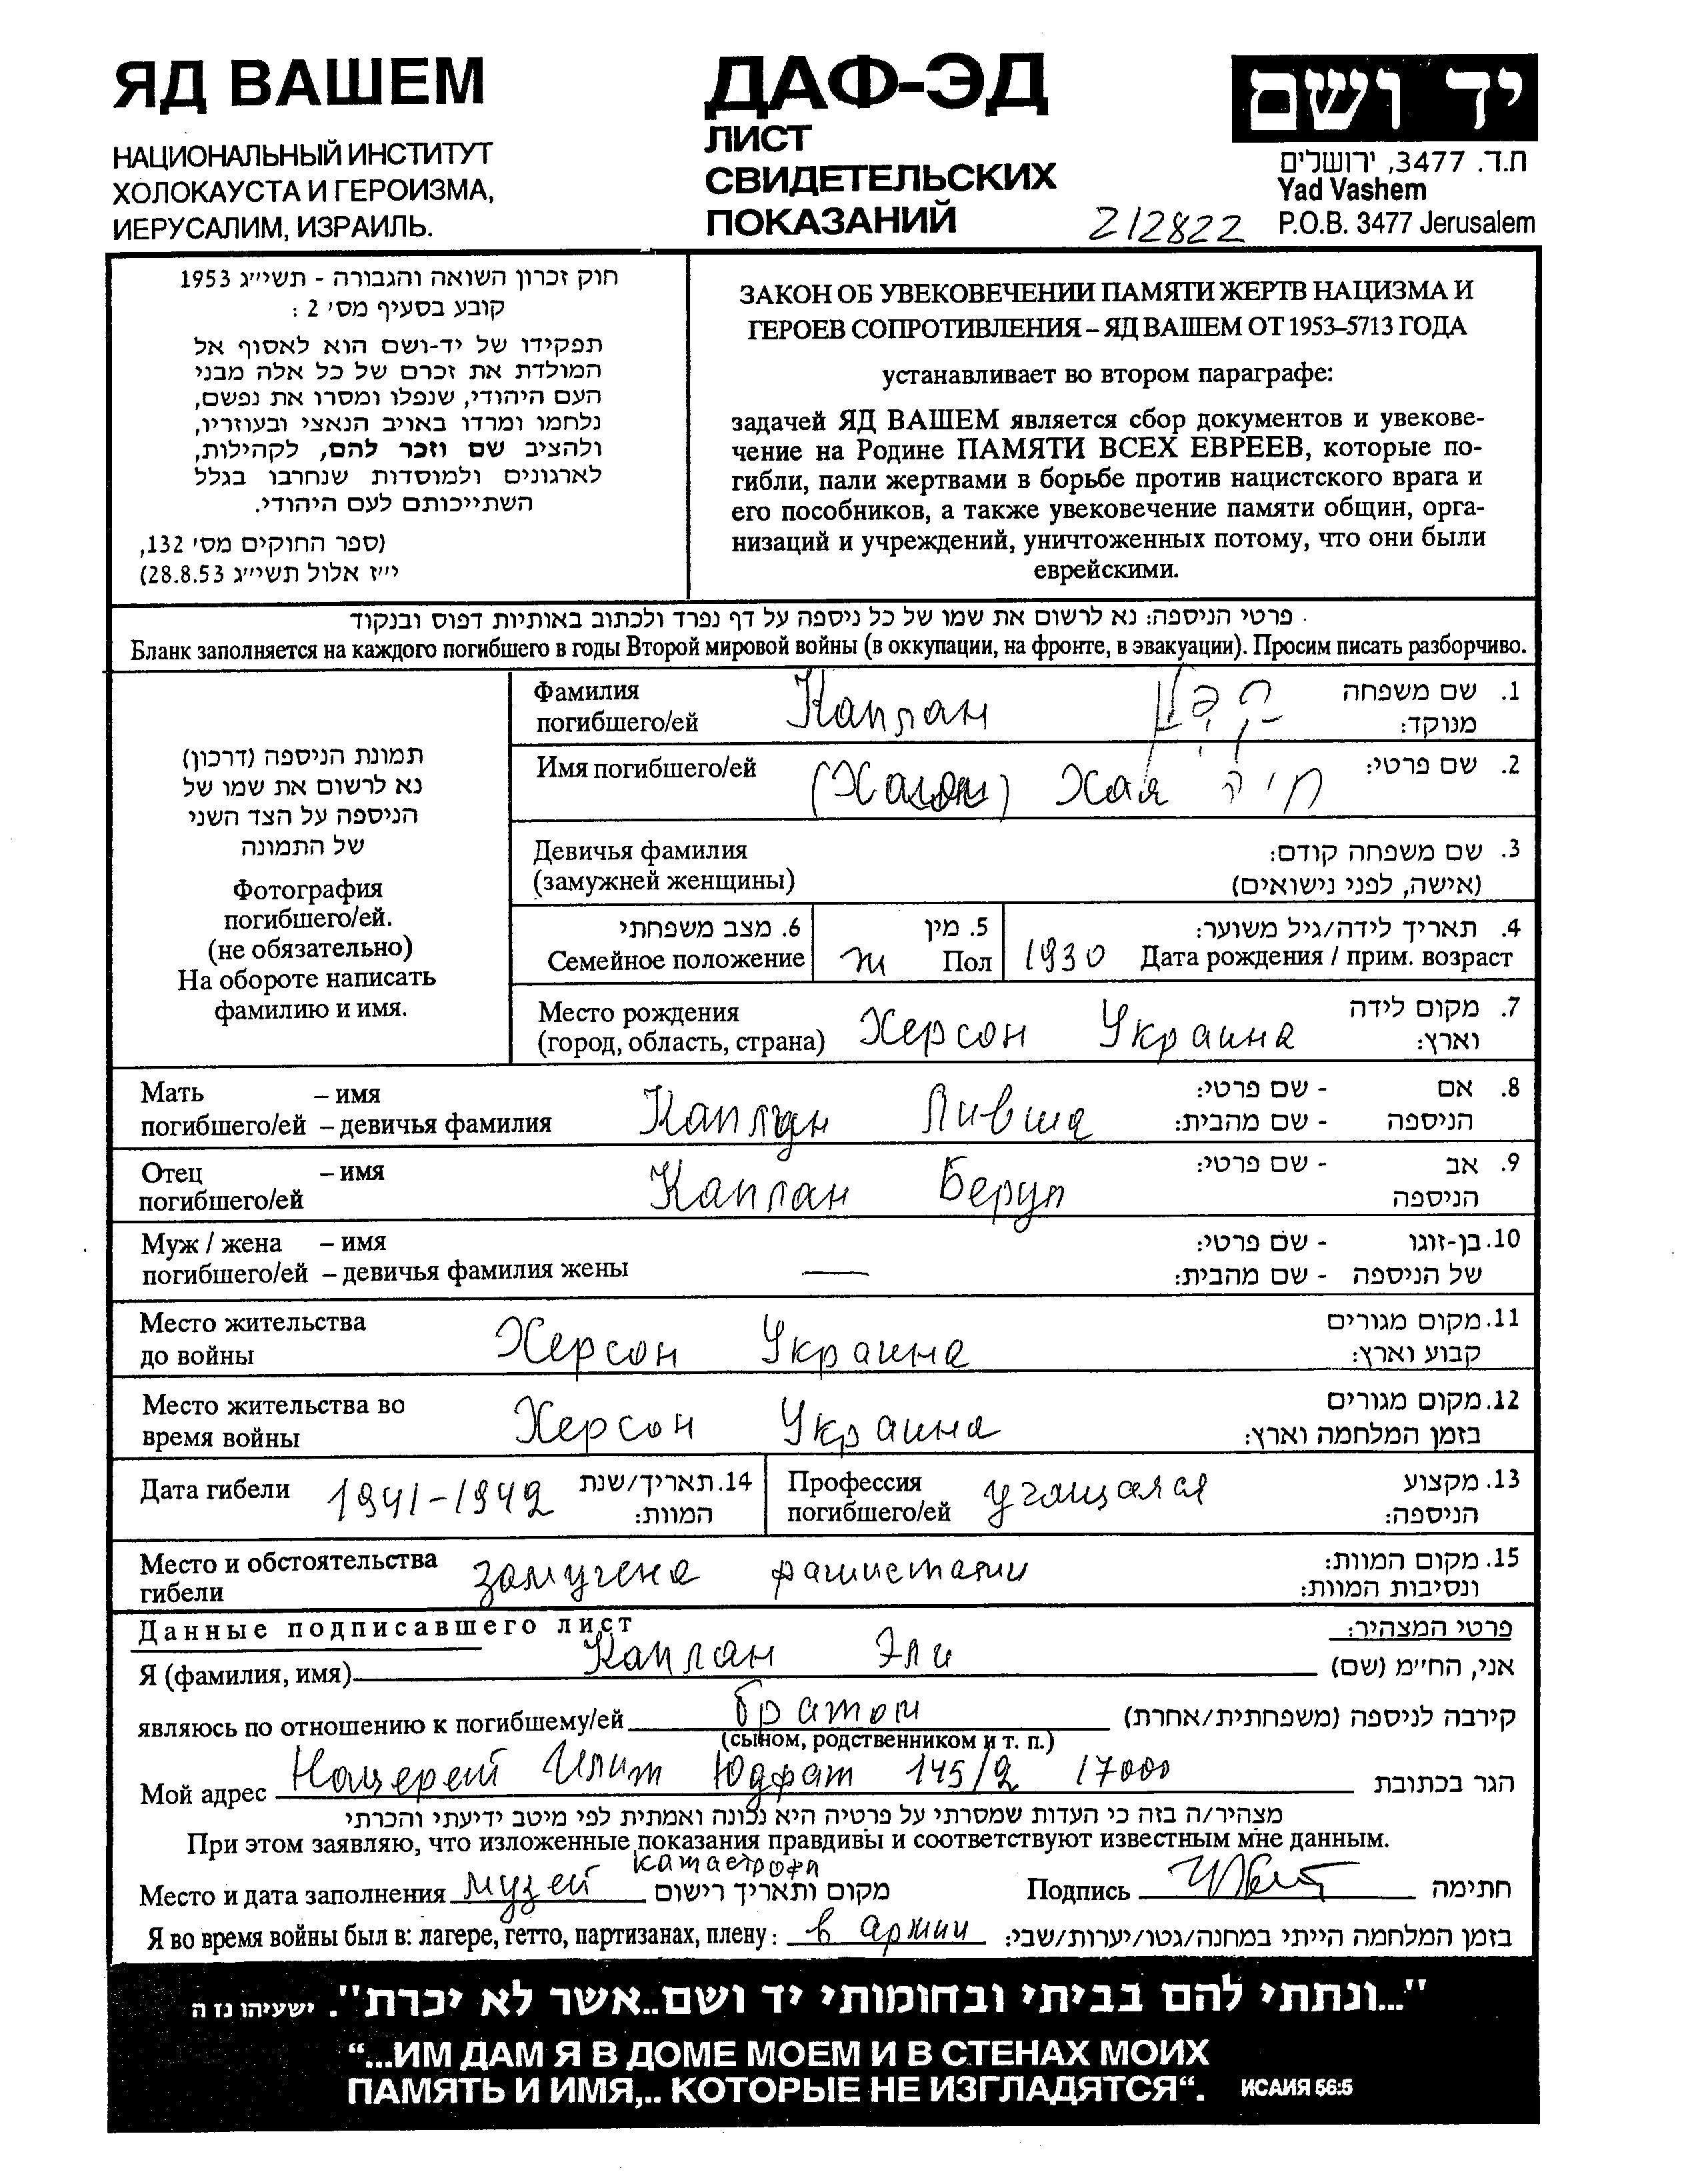 ЯД ВАШЕМ
НАЦИОНАЛЬНЫЙ ИНСТИТУТ
ХОЛОКАУСТА И ГЕРОИЗМА,
ИЕРУСАЛИМ, ИЗРАИЛЬ.
ДАФ-ЭД
ЛИСТ
СВИДЕТЕЛЬСКИХ
ПОКАЗАНИЙ
212822
יד ושם
ת.ד. 3477, ירושלים
Yad Vashem
P.O.B. 3477 Jerusalem
חוק זכרון השואה והגבורה - תשי״ג 1953
קובע בסעיף מס׳ 2 :
תפקידו של יד-ושם הוא לאסוף אל
המולדת את זכרם של כל אלה מבני
העם היהודי, שנפלו ומסרו את נפשם,
נלחמו ומרדו באויב הנאצי ובעוזריו,
ולהציב שם וזכר להם, לקהילות,
לארגונים ולמוסדות שנחרבו בגלל
השתייכותם לעם היהודי.
(ספר החוקים מס׳ 132,
י״ז אלול תשי״ג 28.8.53)
ЗАКОН ОБ УВЕКОВЕЧЕНИИ ПАМЯТИ ЖЕРТВ НАЦИЗМА И
ГЕРОЕВ СОПРОТИВЛЕНИЯ – ЯД ВАШЕМ ОТ 1953–5713 ГОДА
устанавливает во втором параграфе:
задачей ЯД ВАШЕМ является сбор документов и увекове-
чение на Родине ПАМЯТИ ВСЕХ ЕВРЕЕВ, которые по-
гибли, пали жертвами в борьбе против нацистского врага и
его пособников, а также увековечение памяти общин, орга-
низаций и учреждений, уничтоженных потому, что они были
еврейскими.
פרטי הניספה: נא לרשום את שמו של כל ניספה על דף נפרד ולכתוב באותיות דפוס ובנקוד
Бланк заполняется на каждого погибшего в годы Второй мировой войны (в оккупации, на фронте, в эвакуации). Просим писать разборчиво.
תמונת הניספה (דרכון)
נא לרשום את שמו של
הניספה על הצד השני
של התמונה
Фотография
погибшего/ей.
(не обязательно)
На обороте написать
фамилию и имя.
Фамилия Каплан קפלן 1. שם משפחה
погибшего/ей מנוקד:
Имя погибшего/ей Хая חיה 2. שם פרטי:
Девичья фамилия 3. שם משפחה קודם:
(замужней женщины) (אישה, לפני נישואים)
6. מצב משפחתי 5. מין 4. תאריך לידה/גיל משוער:
Семейное положение ж Пол 1930 Дата рождения / прим. возраст
Место рождения Херсон Украина 7. מקום לידה
(город, область, страна) וארץ:
Мать – имя 8. אם - שם פרטי:
погибшего/ей – девичья фамилия Каплан Ливша הניספה - שם מהבית:
Отец – имя 9. אב - שם פרטי:
погибшего/ей Каплан Берул הניספה
Муж / жена – имя 10. בן-זוגו - שם פרטי:
погибшего/ей – девичья фамилия жены — של הניספה - שם מהבית:
Место жительства Херсон Украина 11. מקום מגורים
до войны קבוע וארץ:
Место жительства во Херсон Украина 12. מקום מגורים
время войны בזמן המלחמה וארץ:
Дата гибели 1941-1942 14. תאריך/שנת
המוות:
Профессия учащаяся 13. מקצוע
погибшего/ей הניספה:
Место и обстоятельства замучена фашистами 15. מקום המוות:
гибели ונסיבות המוות:
Данные подписавшего лист פרטי המצהיר:
Я (фамилия, имя) Каплан Эли אני, הח״מ (שם)
являюсь по отношению к погибшему/ей братом קירבה לניספה (משפחתית/אחרת)
(сыном, родственником и т. п.)
Мой адрес Нацерет Илит Юдфат 145/2 17000 הגר בכתובת
מצהיר/ה בזה כי העדות שמסרתי על פרטיה היא נכונה ואמתית לפי מיטב ידיעתי והכרתי
При этом заявляю, что изложенные показания правдивы и соответствуют известным мне данным.
Место и дата заполнения музей катастрофы מקום ותאריך רישום Подпись חתימה
Я во время войны был в: лагере, гетто, партизанах, плену: в армии בזמן המלחמה הייתי במחנה/גטו/יערות/שבי:
"...ונתתי להם בביתי ובחומותי יד ושם..אשר לא יכרת". ישעיהו נז ה
“...ИМ ДАМ Я В ДОМЕ МОЕМ И В СТЕНАХ МОИХ
ПАМЯТЬ И ИМЯ,.. КОТОРЫЕ НЕ ИЗГЛАДЯТСЯ“. ИСАИЯ 56:5